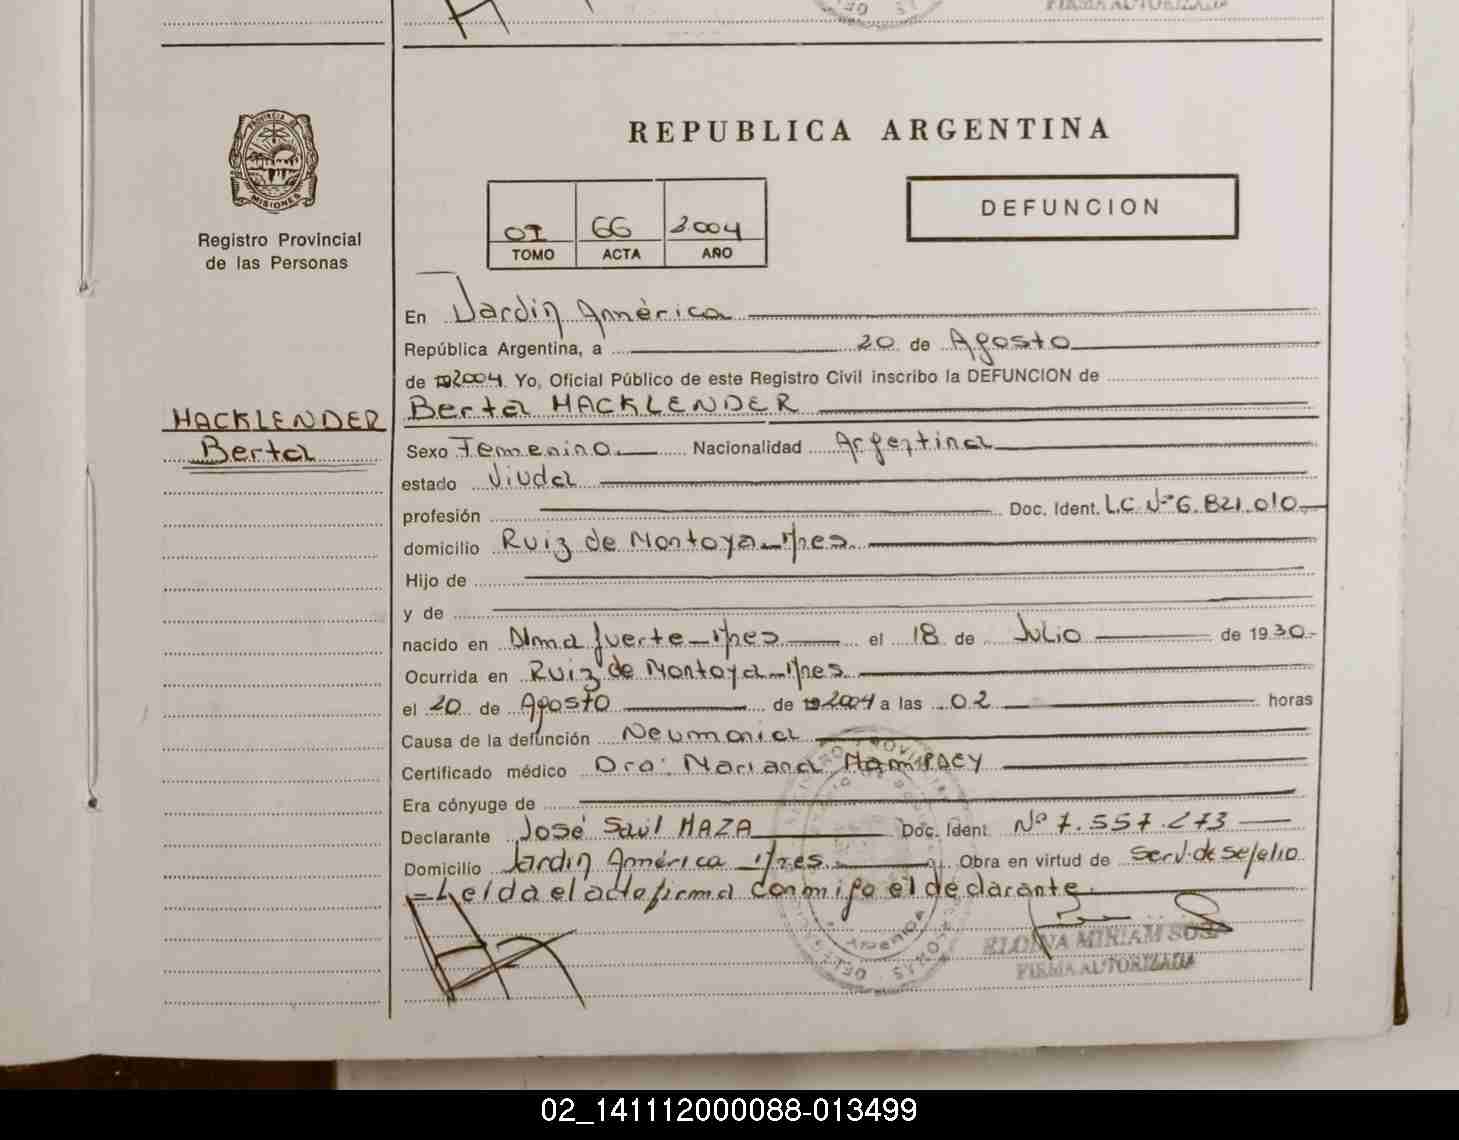 FIRMA AUTORIZADA
PROVINCIA DE
MISIONES
Registro Provincial
de las Personas
REPUBLICA ARGENTINA
01 66 2.004
TOMO ACTA AÑO
DEFUNCION
En Jardín América
República Argentina, a 20 de Agosto
de 2004. Yo, Oficial Público de este Registro Civil inscribo la DEFUNCION de
HACKLENDER
Berta
Berta HACKLENDER
Sexo Femenino Nacionalidad Argentina
estado Viuda
profesión Doc. Ident. L.C. Nº 6.821.010
domicilio Ruiz de Montoya - Mnes.
Hijo de
y de
nacido en Alma fuerte - Mnes el 18 de Julio de 1930
Ocurrida en Ruiz de Montoya - Mnes.
el 20 de Agosto de 2004 a las 02 horas
Causa de la defunción Neumonia
Certificado médico Dra: Mariana
Era cónyuge de
Declarante José Saúl MAZA Doc. Ident. Nº 7.557.273
Domicilio Jardín América - Mnes. Obra en virtud de Serv. de Sepelio
= Leida el acta firma conmigo el declarante.
ELOINA MIRIAM SOSA
FIRMA AUTORIZADA
02_141112000088-013499